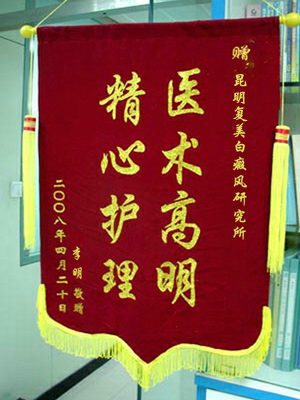 赠 昆明复美白癜风研究所
医术高明
精心护理
李明 敬赠
二〇〇八年四月二十日